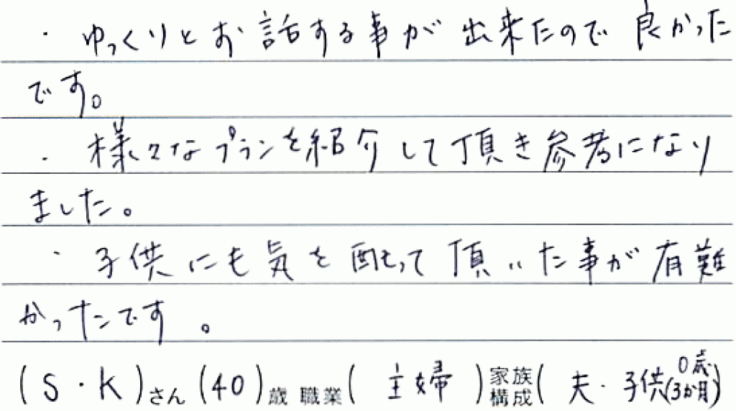 ・ ゆっくりとお話する事が出来たので良かった
です。
・ 様々なプランを紹介して頂き参考になり
ました。
・ 子供にも気を配って頂いた事が有難
かったです。
(S・K)さん(40)歳 職業(主婦)家族構成(夫・子供(0歳3か月))